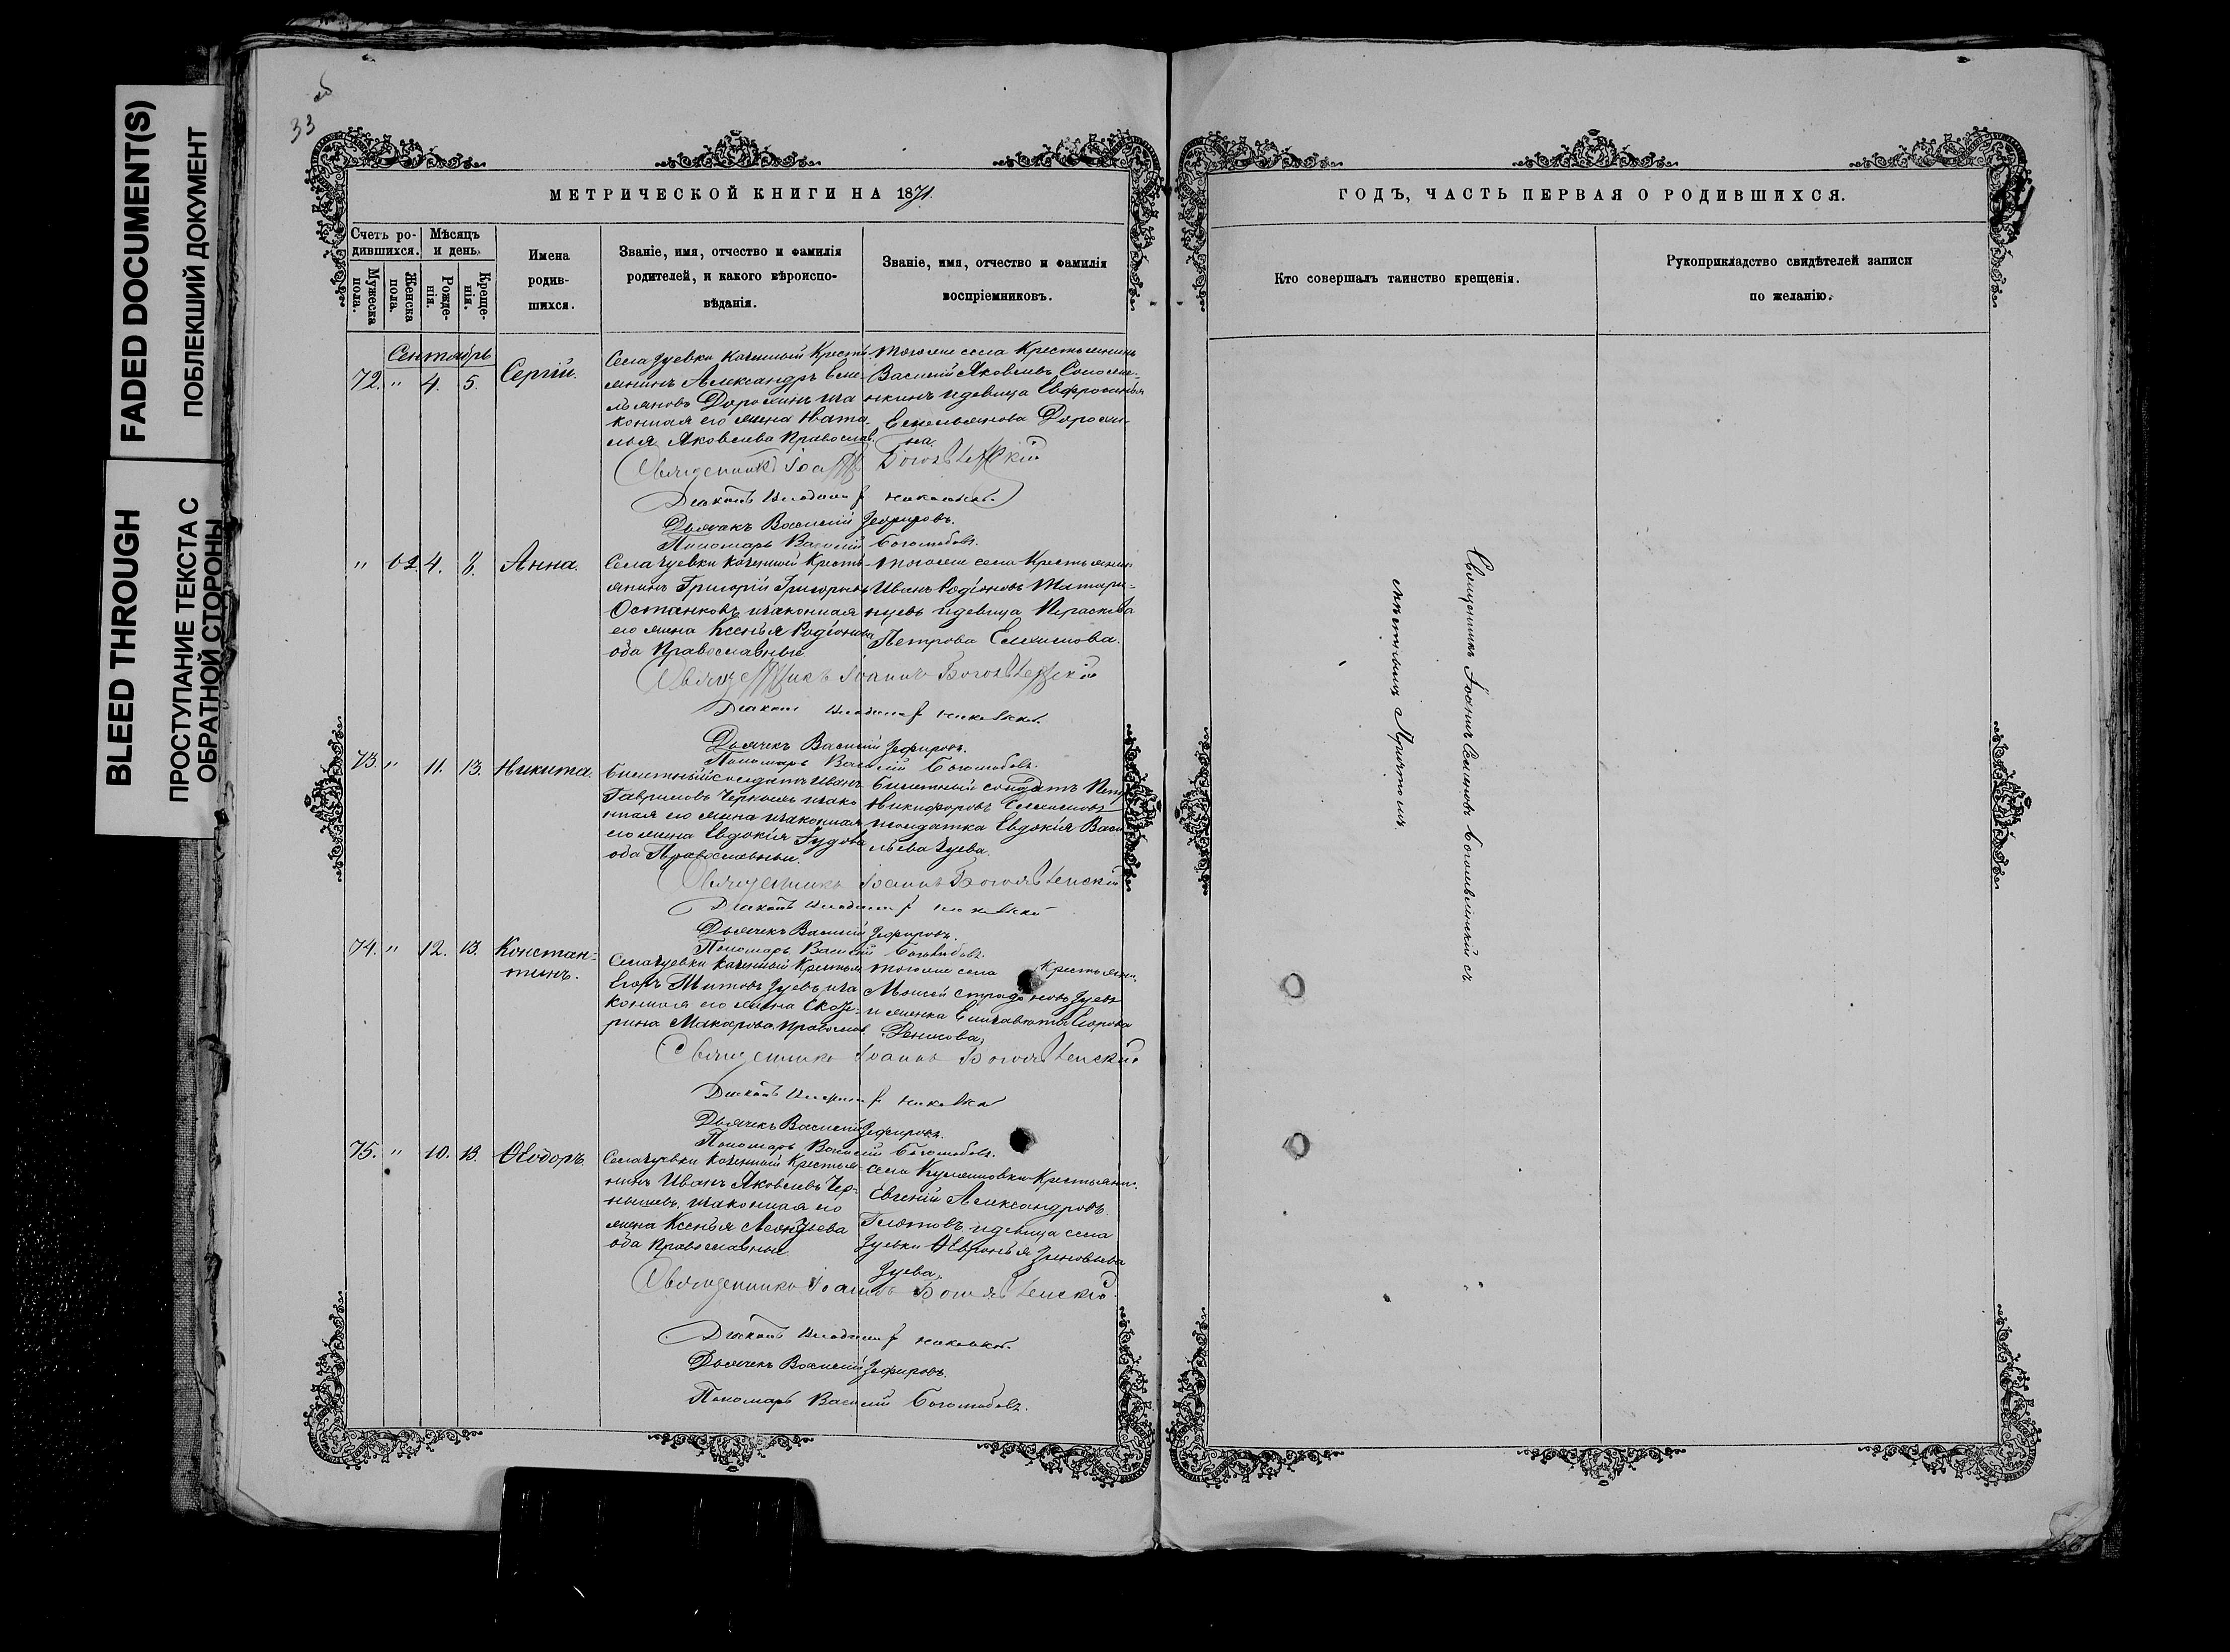 FADED DOCUMENT(S)
ПОБЛЕКШИЙ ДОКУМЕНТ
BLEED THROUGH
ПРОСТУПАНИЕ ТЕКСТА С
ОБРАТНОЙ СТОРОНЫ
33
МЕТРИЧЕСКОЙ КНИГИ НА 1871.
Счетъ ро-
дившихся.
Мѣсяцъ
и день.
Мужеска
пола.
Женска
пола.
Рожде-
нія.
Креще-
нія.
Имена
родив-
шихся.
Званіе, имя, отчество и фамилія
родителей, и какого вѣроиспо-
вѣданія.
Званіе, имя, отчество и фамилія
воспріемниковъ.
Сентябрь
72. " 4. 5. Сергій.
Села Зуевки Казенный Кресть-
янинъ Александръ Еме-
льяновъ Дорохинъ иза
конная его жена Ната
лья Яковлева Православ.
Тогоже села Крестьянинъ
Василій Яковлевъ
идевица Евфросинья
Емельянова Дорохи-
на.
Священникъ Іоаннъ Богоявленскій
Діаконъ
Дьячекъ Василій Зефировъ.
Пономарь Василій Боголюбовъ.
" 62. 4. 8. Анна.
Села Зуевки Казенный Кресть-
янинъ Григорій Григорьевъ
Останковъ изаконная
его жена Ксенья Родіонова
оба Православные
Тогоже села Крестьянин
Иванъ Родіоновъ Татари-
нцевъ идевица Параскева
Петрова Елхимова.
Священникъ Іоаннъ Богоявленскій
Діаконъ
Дьячекъ Василій Зефировъ.
Пономарь Василій Боголюбовъ.
73. " 11. 13. Никита.
Билетный солдатъ Иванъ
Гавриловъ изако
нная его жена изаконная
его жена Евдокія
оба Православные.
Билетный солдатъ Петръ
Никифоровъ Елхимовъ
исолдатка Евдокія Васи
льева Зуева.
Священникъ Іоаннъ Богоявленскій
Діаконъ
Дьячекъ Василій Зефировъ.
Пономарь Василій Боголюбовъ.
74. " 12. 13. Констан-
тинъ.
Села Зуевки Казенный Крестьян
Егоръ Титовъ Зуевъ иза
конная его жена Екате-
рина Макарова Православ
Тогоже села Крестьяни.
Моисей Зуевъ
и женка Елизавета Егорова
Денисова.
Священникъ Іоаннъ Богоявленскій
Діаконъ
Дьячекъ Василій Зефировъ.
Пономарь Василій Боголюбовъ.
75. " 10. 13. Ѳеодоръ.
Села Зуевки Казенный Крестья-
нинъ Иванъ Яковлевъ Чер-
нышевъ, изаконная его
жена Ксенья Леонтьева
оба Православные
Села Крестьянин.
Евгеній Александровъ
Глотовъ идевица села
Зуевки Ѳевронья Зиновьева
Зуева.
Священникъ Іоаннъ Богоявленскій
Діаконъ
Дьячекъ Василій Зефировъ.
Пономарь Василій Боголюбовъ.
ГОДЪ, ЧАСТЬ ПЕРВАЯ О РОДИВШИХСЯ.
Кто совершалъ таинство крещенія.
Рукоприкладство свидѣтелей записи
по желанію.
Священникъ Іоаннъ Богоявленскій съ
Причтомъ.